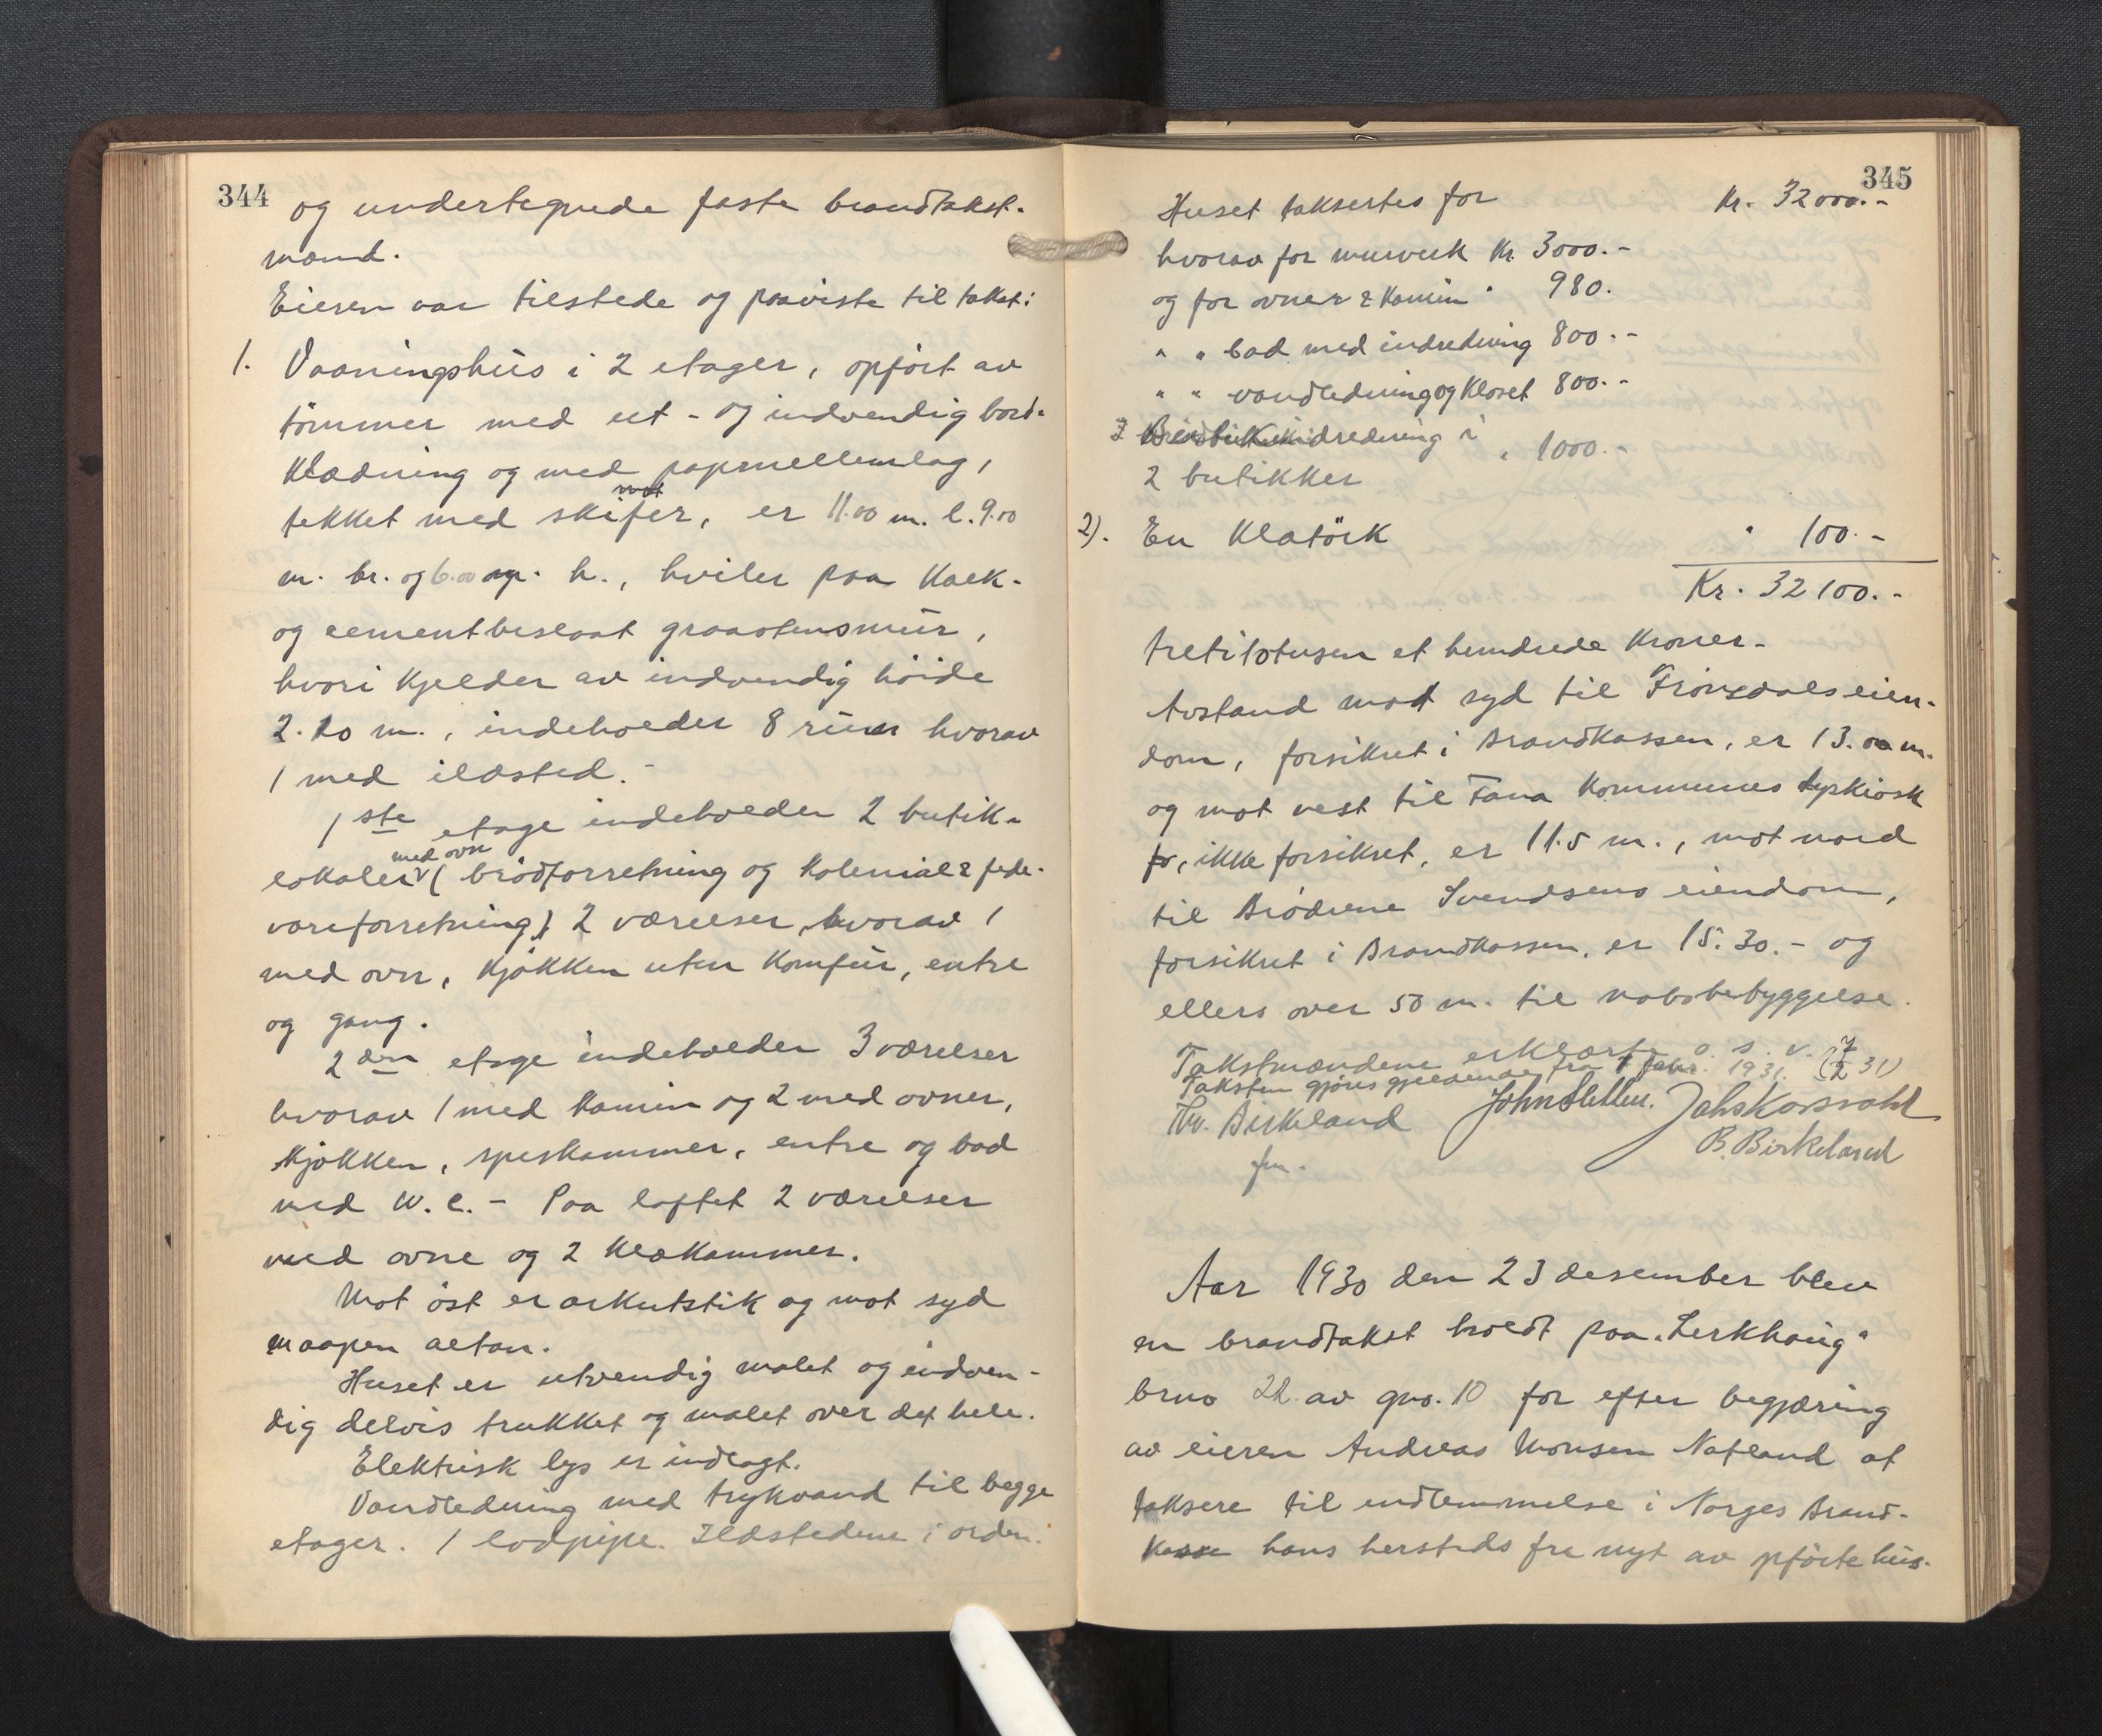 344
og undertegnede faste brandtakst-
mænd.
Eieren var tilstede og paaviste til takst:
1. Vaaningshus i 2 etager, opført av
tömmer med ut- og indvendig bord-
klædning og med papmellemlag,
tekket med skifer, er 11.00 m. l. 9.00
m. br. og 6.00 m. h., hviler paa kalk-
og cementbeslaat graastensmur,
hvori kjelder av indvendig höide
2.20 m., indeholder 8 rum hvorav
1 med ildsted.-
1ste etage indeholder 2 butik-
med ovn
lokaler (brödforretning og kolonial & fede-
vareforretning) 2 værelser, hvorav 1
med ovn, kjökken uten komfur, entre
og gang.
2den etage indeholder 3 værelser
hvorav 1 med kamin og 2 med ovner,
kjökken, speskammer, entre og bad
med W.C. - Paa loftet 2 værelser
med ovne og 2 klækammer.
Mot öst er arkutstik og mot syd
aapen altan.
Huset er utvendig malet og indven-
dig delvis trukket og malet over det hele.
Elektrisk lys er indlagt.
Vandledning med trykvand til begge
etager. 1 lodpipe. Ildstedene i orden.
345
Huset taksertes for Kr. 32000.-
hvorav for murverk Kr. 3000.-
og for ovner & kamin " 980.
" " bad med indredning 800.-
" " vandledning og kloset 800.-
indredning i " 1000.-
2 butikker
2). En Klatörk " 100.-
Kr. 32100.-
trettitotusen et hundrede kroner.-
Avstand mot syd til Frönsdals eien-
dom, forsikret i Brandkassen, er 13.00 m.
og mot vest til Fana kommunes kiosk
, ikke forsikret, er 11.5 m., mot nord
til Brödrene Svendsens eiendom,
forsikret i Brandkassen, er 15.30.- og
ellers over 50 m. til nabobebyggelse.
Takstmændene erklærte o. s. v.
Taksten gjöres gjeldende fra 1 1931. (7/2 31)
Birkeland John Sletten.
B. Birkeland
fm.
Aar 1930 den 23 desember blev
en brandtakst holdt paa "Lerkhaug"
brno 22 av gno. 10 for efter begjæring
av eieren Andreas Monsen Natland at
taksere til indlemmelse i Norges Brand-
kasse hans hersteds fra nyt av pförte hus.